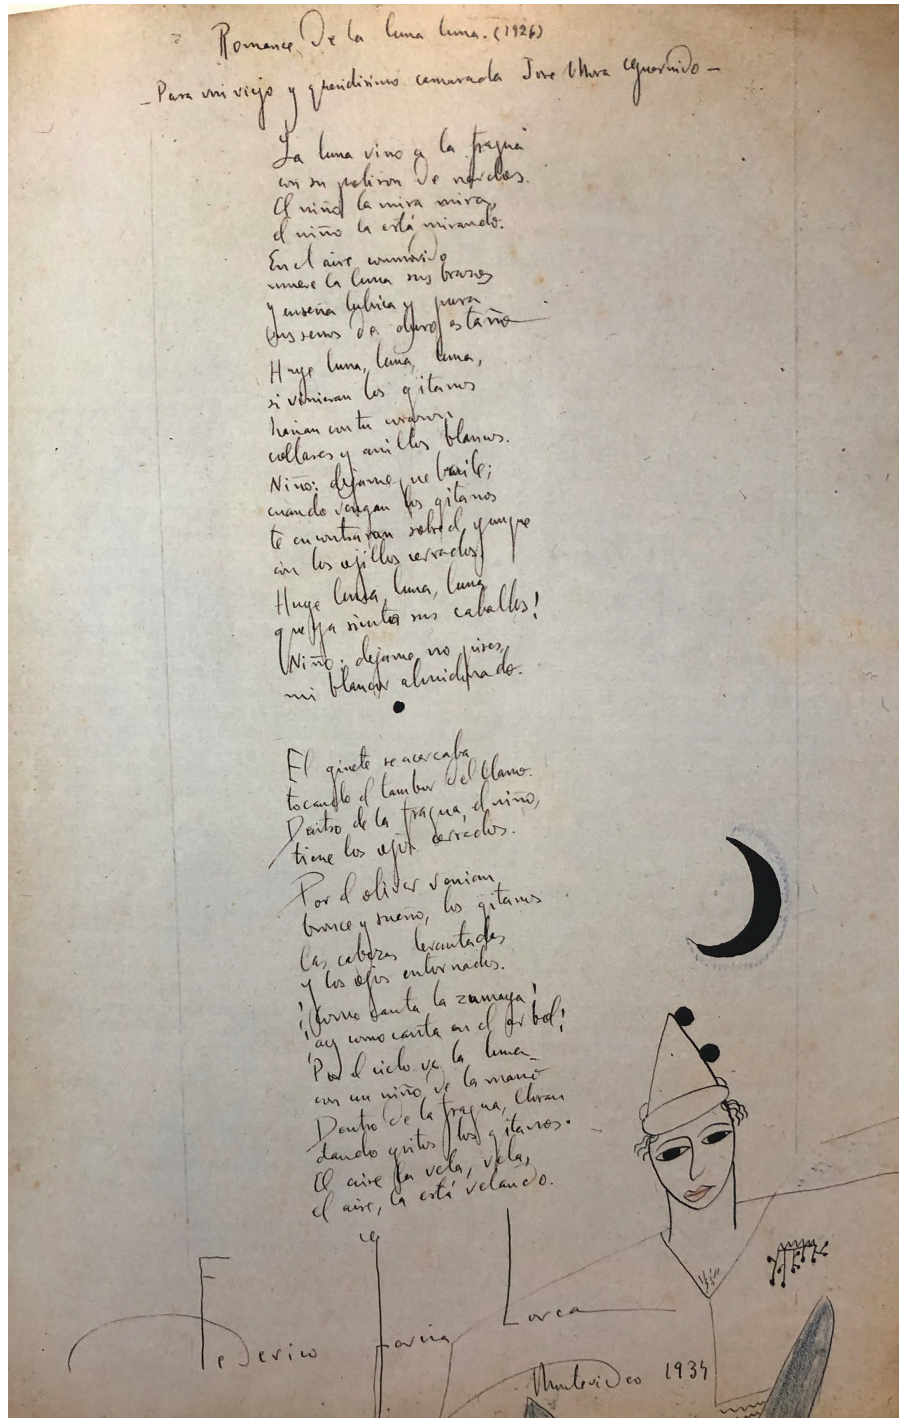 Romance De la luna luna. (1926)
- Para mi viejo y queridisimo camarada Jose Mora Guarnido -
La luna vino a la fragua
con su polison de nardos.
El niño la mira mira,
el niño la está mirando.
En el aire conmovido
mueve la luna sus brazos
y enseña lubrica y pura
sus senos de duro estaño
Huye luna, luna, luna,
si vinieran los gitanos
harian con tu corazon
collares y anillos blancos.
Niño: dejame que baile;
cuando vengan los gitanos
te encontraran sobre el yunque
con los ojillos cerrados
Huye luna, luna, luna
que ya siento sus caballos!
Niño: dejame, no pises,
mi blancor almidonado.
El ginete se acercaba
tocando el tambor del llano.
Dentro de la fragua, el niño,
tiene los ojos cerrados.
Por el olivar venian
bronce y sueño, los gitanos
las cabezas levantadas
y los ojos entornados.
¡Como canta la zumaya!
¡ay como canta en el arbol!
Por el cielo va la luna
con un niño de la mano
Dentro de la fragua, lloran
dando gritos los gitanos.
El aire la vela, vela,
el aire, la está velando.
Federico García Lorca
Montevideo 1934